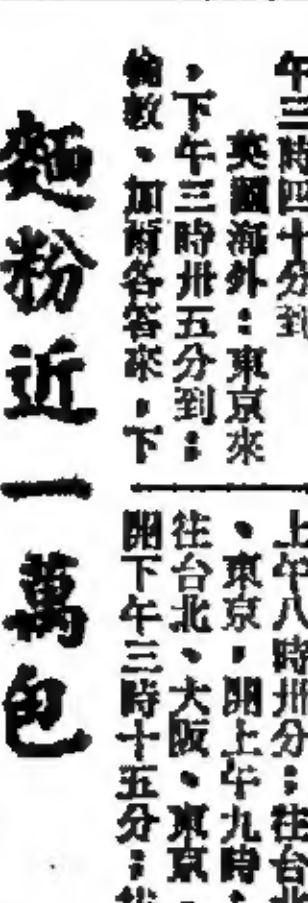 午三時四十分到
英國海外：東京來
，下午三時卅五分到；
倫敦、加爾各答來，下
上午八時卅分；往台北
、東京，開上午九時；
往台北、大阪、東京，
開下午三時十五分；
麵粉近一萬包